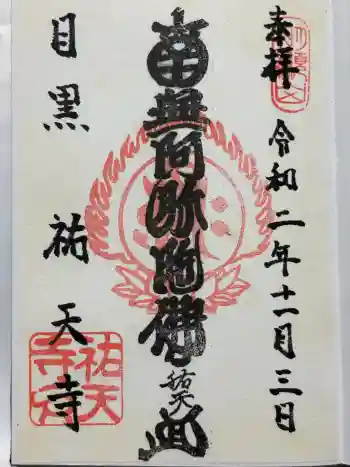 奉拝
令和二年十一月三日
南無阿弥陀佛
祐天
目黒 祐天寺